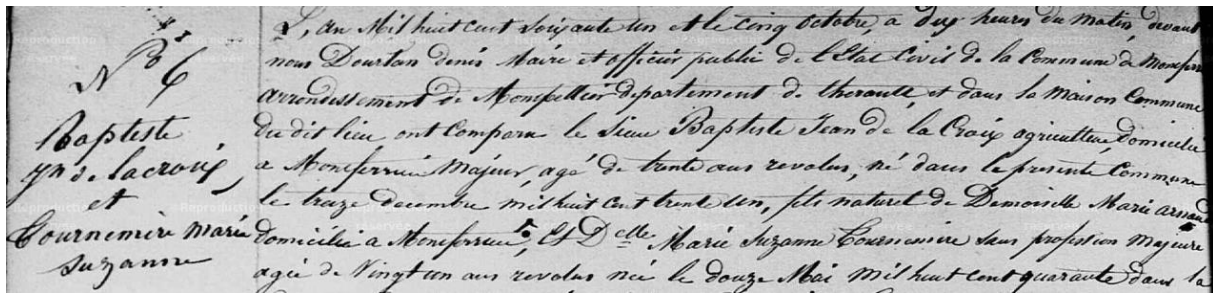 N° 6
Baptiste
Jn de lacroix
et
Cournemire Marie
Suzanne
L'an Mil huit cent soixante un et le cinq octobre, a dix heures du matin, devant
nous Dourtan denis Maire et officier public de l'Etat Civil de la Commune de Monferri
arrondissement de Monpellier departement de lherault, et dans la maison Commune
du dit lieu ont Comparu le Sieur Baptiste Jean de la Croix agriculteur domicilie
a Monferrier Majeur, agé de trente ans revolus, né dans le presente Commune
le treze decembre mil huit cent trente un, fils naturel de Demoiselle Marie arnaud
domiciliée a Monferrier, Et Delle Marie Suzanne Cournemire sans profession Majeure
agée de Vingt un ans revolus née le douze Mai mil huit cent quarante dans la